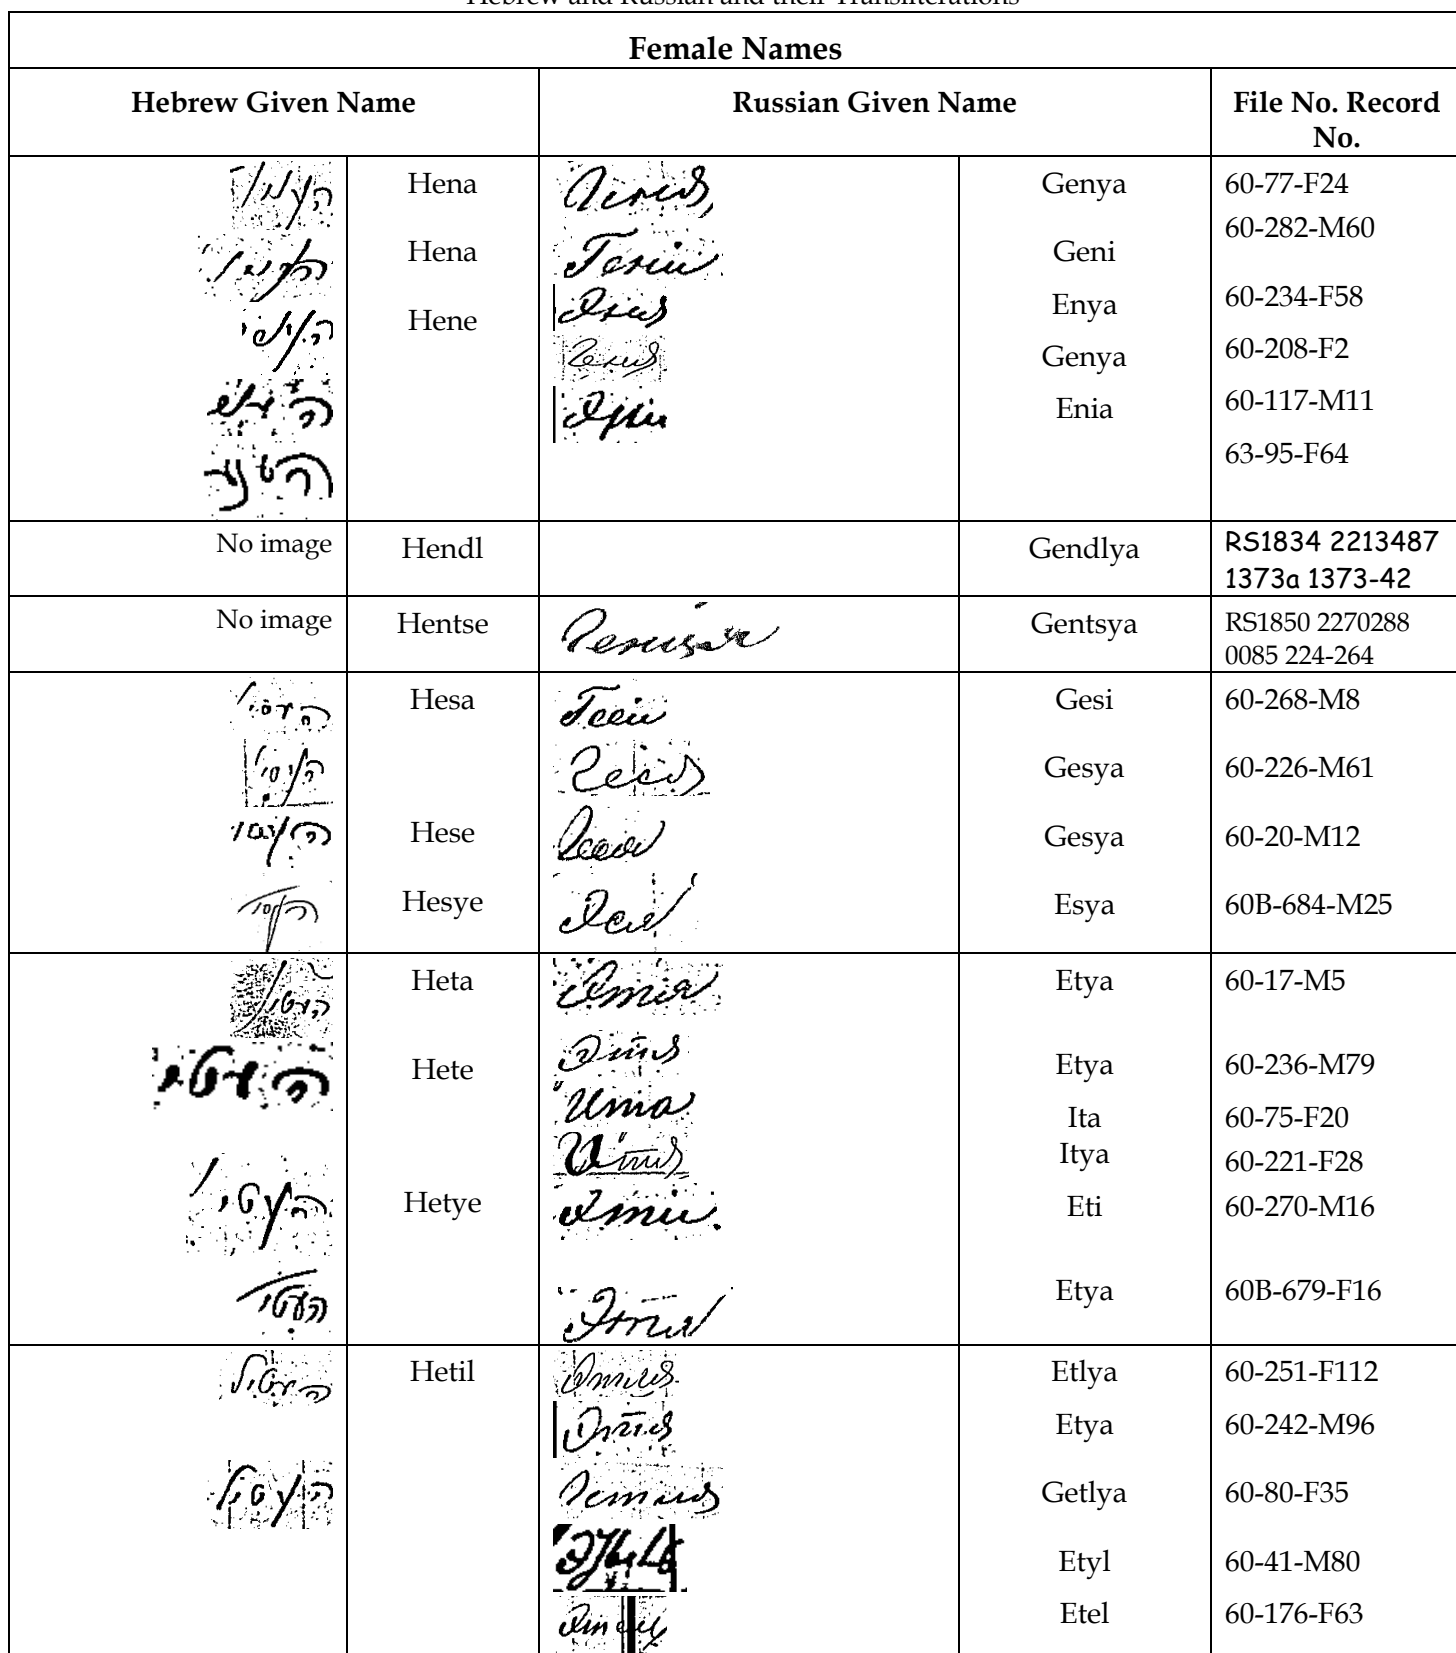 Hebrew and Russian and their Transliterations
Female Names
Hebrew Given Name Russian Given Name File No. Record No.
העני Hena Геня, Genya 60-77-F24
Hena Гени Geni 60-282-M60
Hene Эня Enya 60-234-F58
Геня Genya 60-208-F2
Эни Enia 60-117-M11
63-95-F64
No image Hendl Gendlya RS1834 2213487
1373a 1373-42
No image Hentse Gentsya RS1850 2270288
0085 224-264
העסי Hesa Геси Gesi 60-268-M8
העסי Геся Gesya 60-226-M61
העסי Hese Геся Gesya 60-20-M12
העסי Hesye Эся Esya 60B-684-M25
העטי Heta Этя Etya 60-17-M5
העטי Hete Этя Etya 60-236-M79
Ита Ita 60-75-F20
Итя Itya 60-221-F28
העטי Hetye Эти Eti 60-270-M16
העטי Этя Etya 60B-679-F16
העטיל Hetil Этля Etlya 60-251-F112
Этя Etya 60-242-M96
העטיל Гетля Getlya 60-80-F35
Etyl 60-41-M80
Etel 60-176-F63